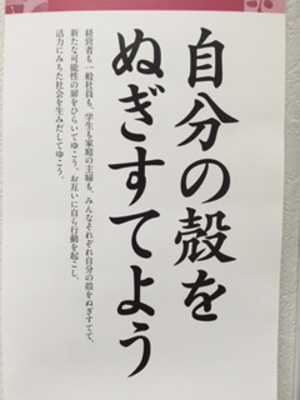 自分の殻を
ぬぎすてよう
経営者も一般社員も、学生も家庭の主婦も、みんなそれぞれ自分の殻をぬぎすてて、
新たな可能性の扉をひらいてゆこう。お互いに自ら行動を起こし、
活力にみちた社会を生みだしてゆこう。